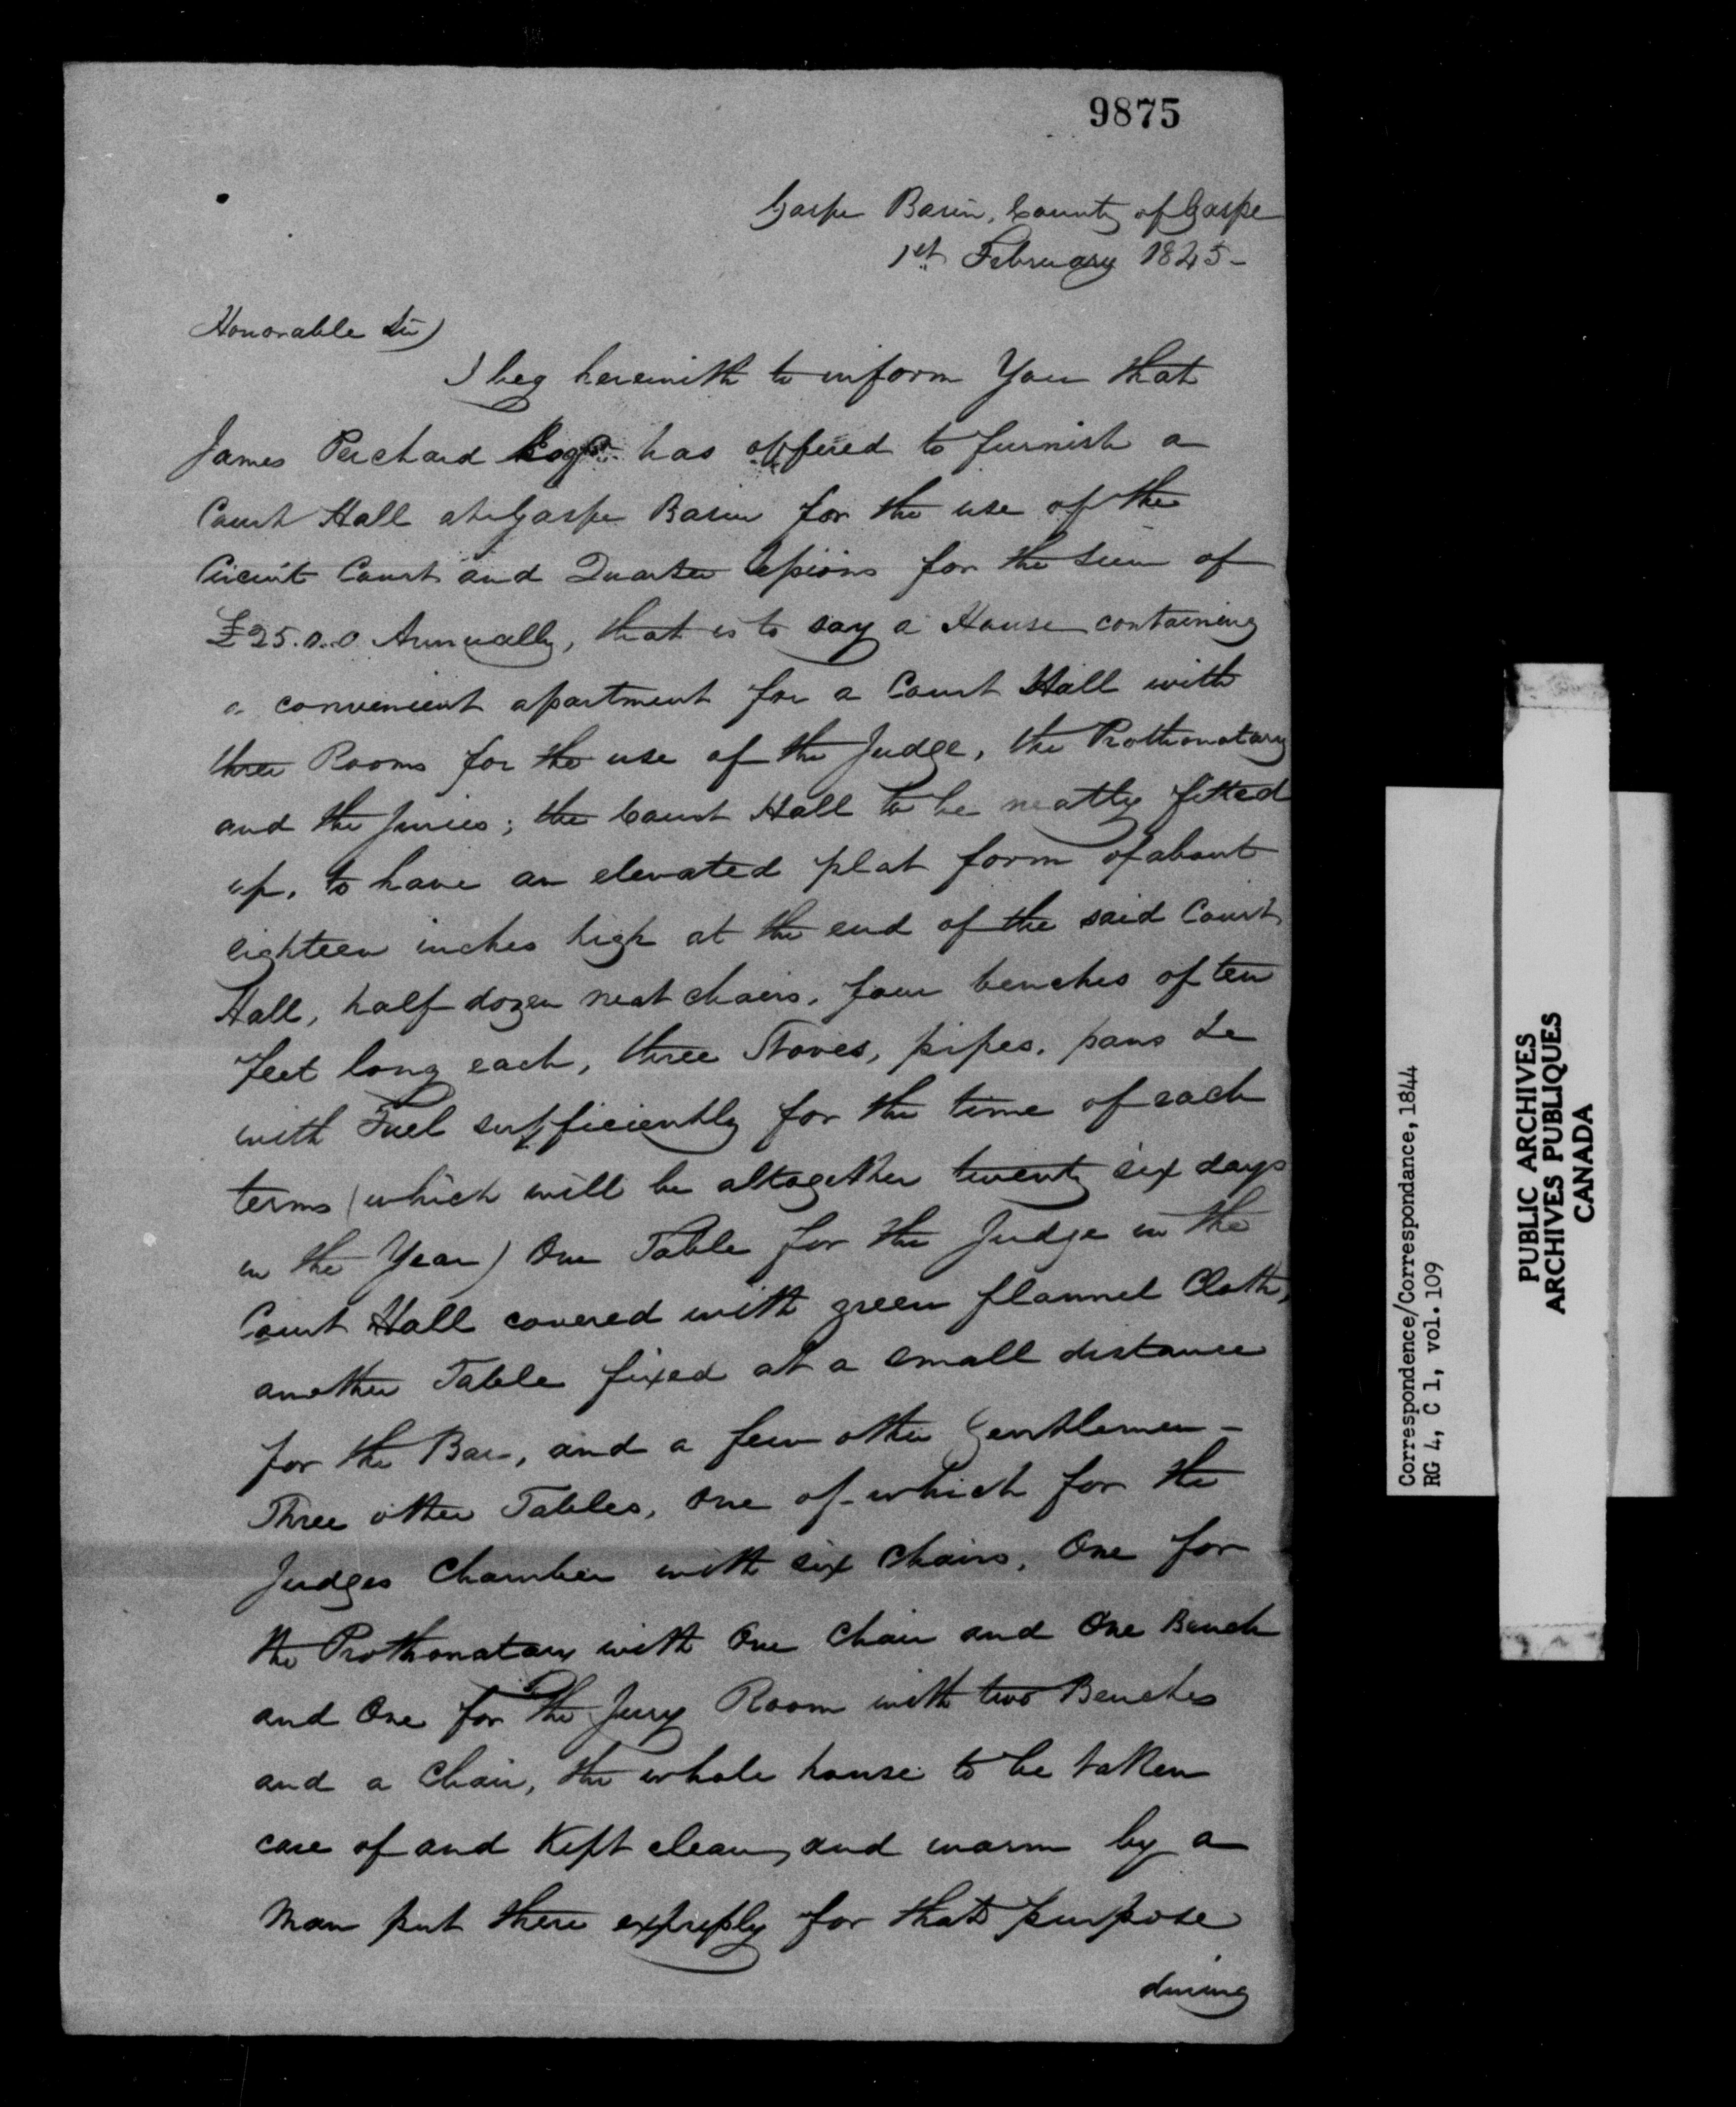 9875
Gaspe Basin, County of Gaspe
1st February 1845-
Honorable Sir)
I beg herewith to inform You that
James Perchard Esqr. has offered to furnish a
Court Hall at Gaspe Basin for the use of the
Circuit Court and Quarter Sessions for the sum of
£25.0.0 Annually, that is to say a House containing
a convenient apartment for a Court Hall with
three Rooms for the use of the Judge, the Prothonotary
and the Juries; the Court Hall to be neatly fitted
up, to have an elevated plat form of about
eighteen inches high at the end of the said Court
Hall, half dozen neat chairs, four benches of ten
feet long each, three Stoves, pipes, pans &c
with Fuel sufficiently for the time of each
terms (which will be altogether twenty six days
in the Year) One Table for the Judge in the
Court Hall covered with green flannel Cloth,
another Table fixed at a small distance
for the Bar, and a few other Gentlemen -
Three other Tables, one of which for the
Judges Chamber with six Chairs, One for
the Prothonatary with One Chair and One Bench
and One for the Jury Room with two Benches
and a Chair, the whole house to be taken
care of and Kept clean, and warm by a
Man put there expressly for that purpose
during
Correspondence/Correspondance, 1844
RG 4, C 1, vol. 109
PUBLIC ARCHIVES
ARCHIVES PUBLIQUES
CANADA